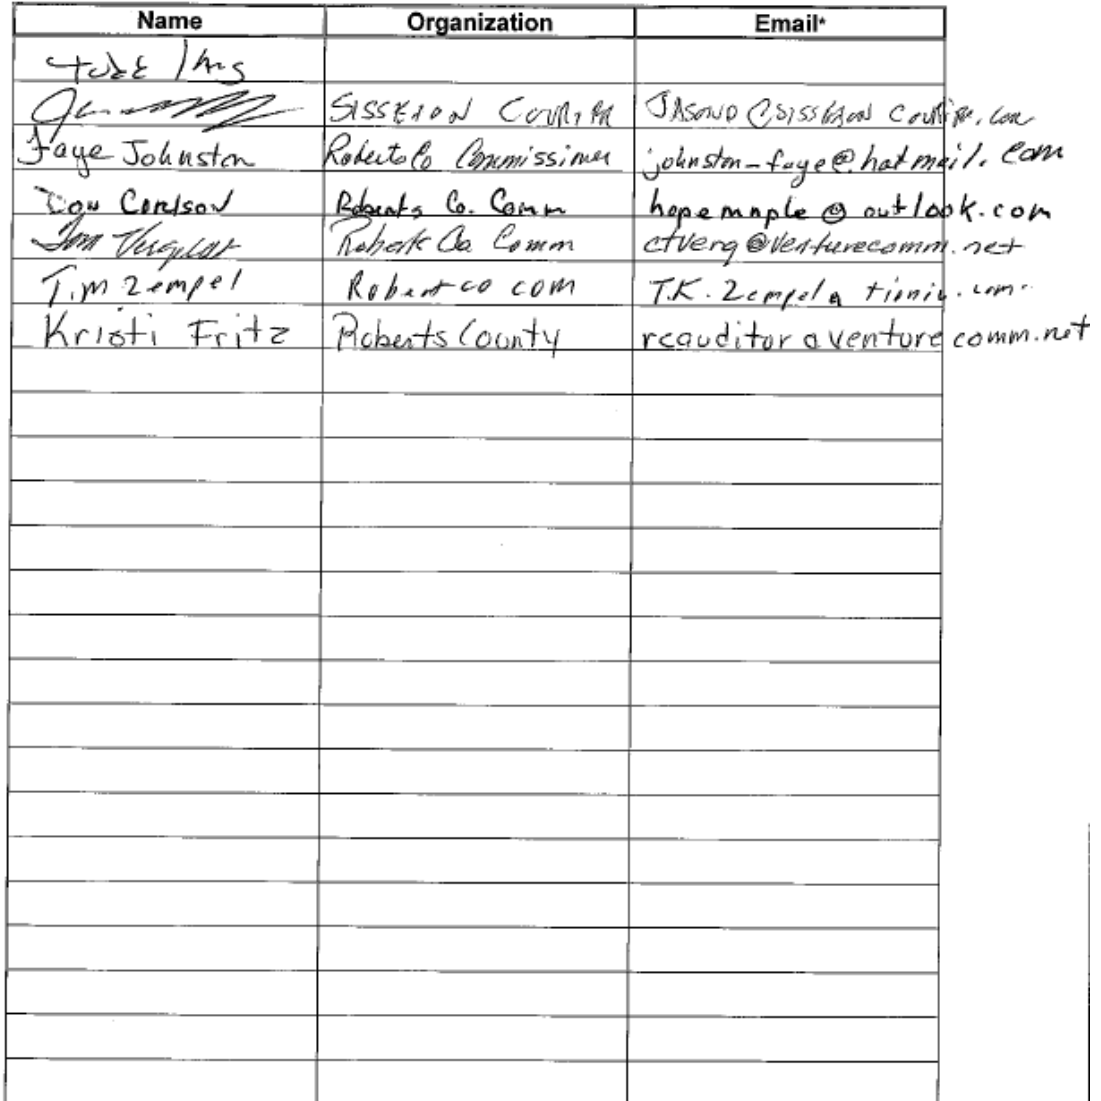 Name Organization Email*
SISSETON COURIER JASOND@SISSETON COURIER.com
Faye Johnston Roberts Co Commissioner johnston-faye@hotmail.com
Don Carlson Roberts Co. Comm hopemaple@outlook.com
Tom Roberts Co. Comm ctverg@venturecomm.net
Tim Zempel Robert co com
Kristi Fritz Roberts County rcauditor@venturecomm.net